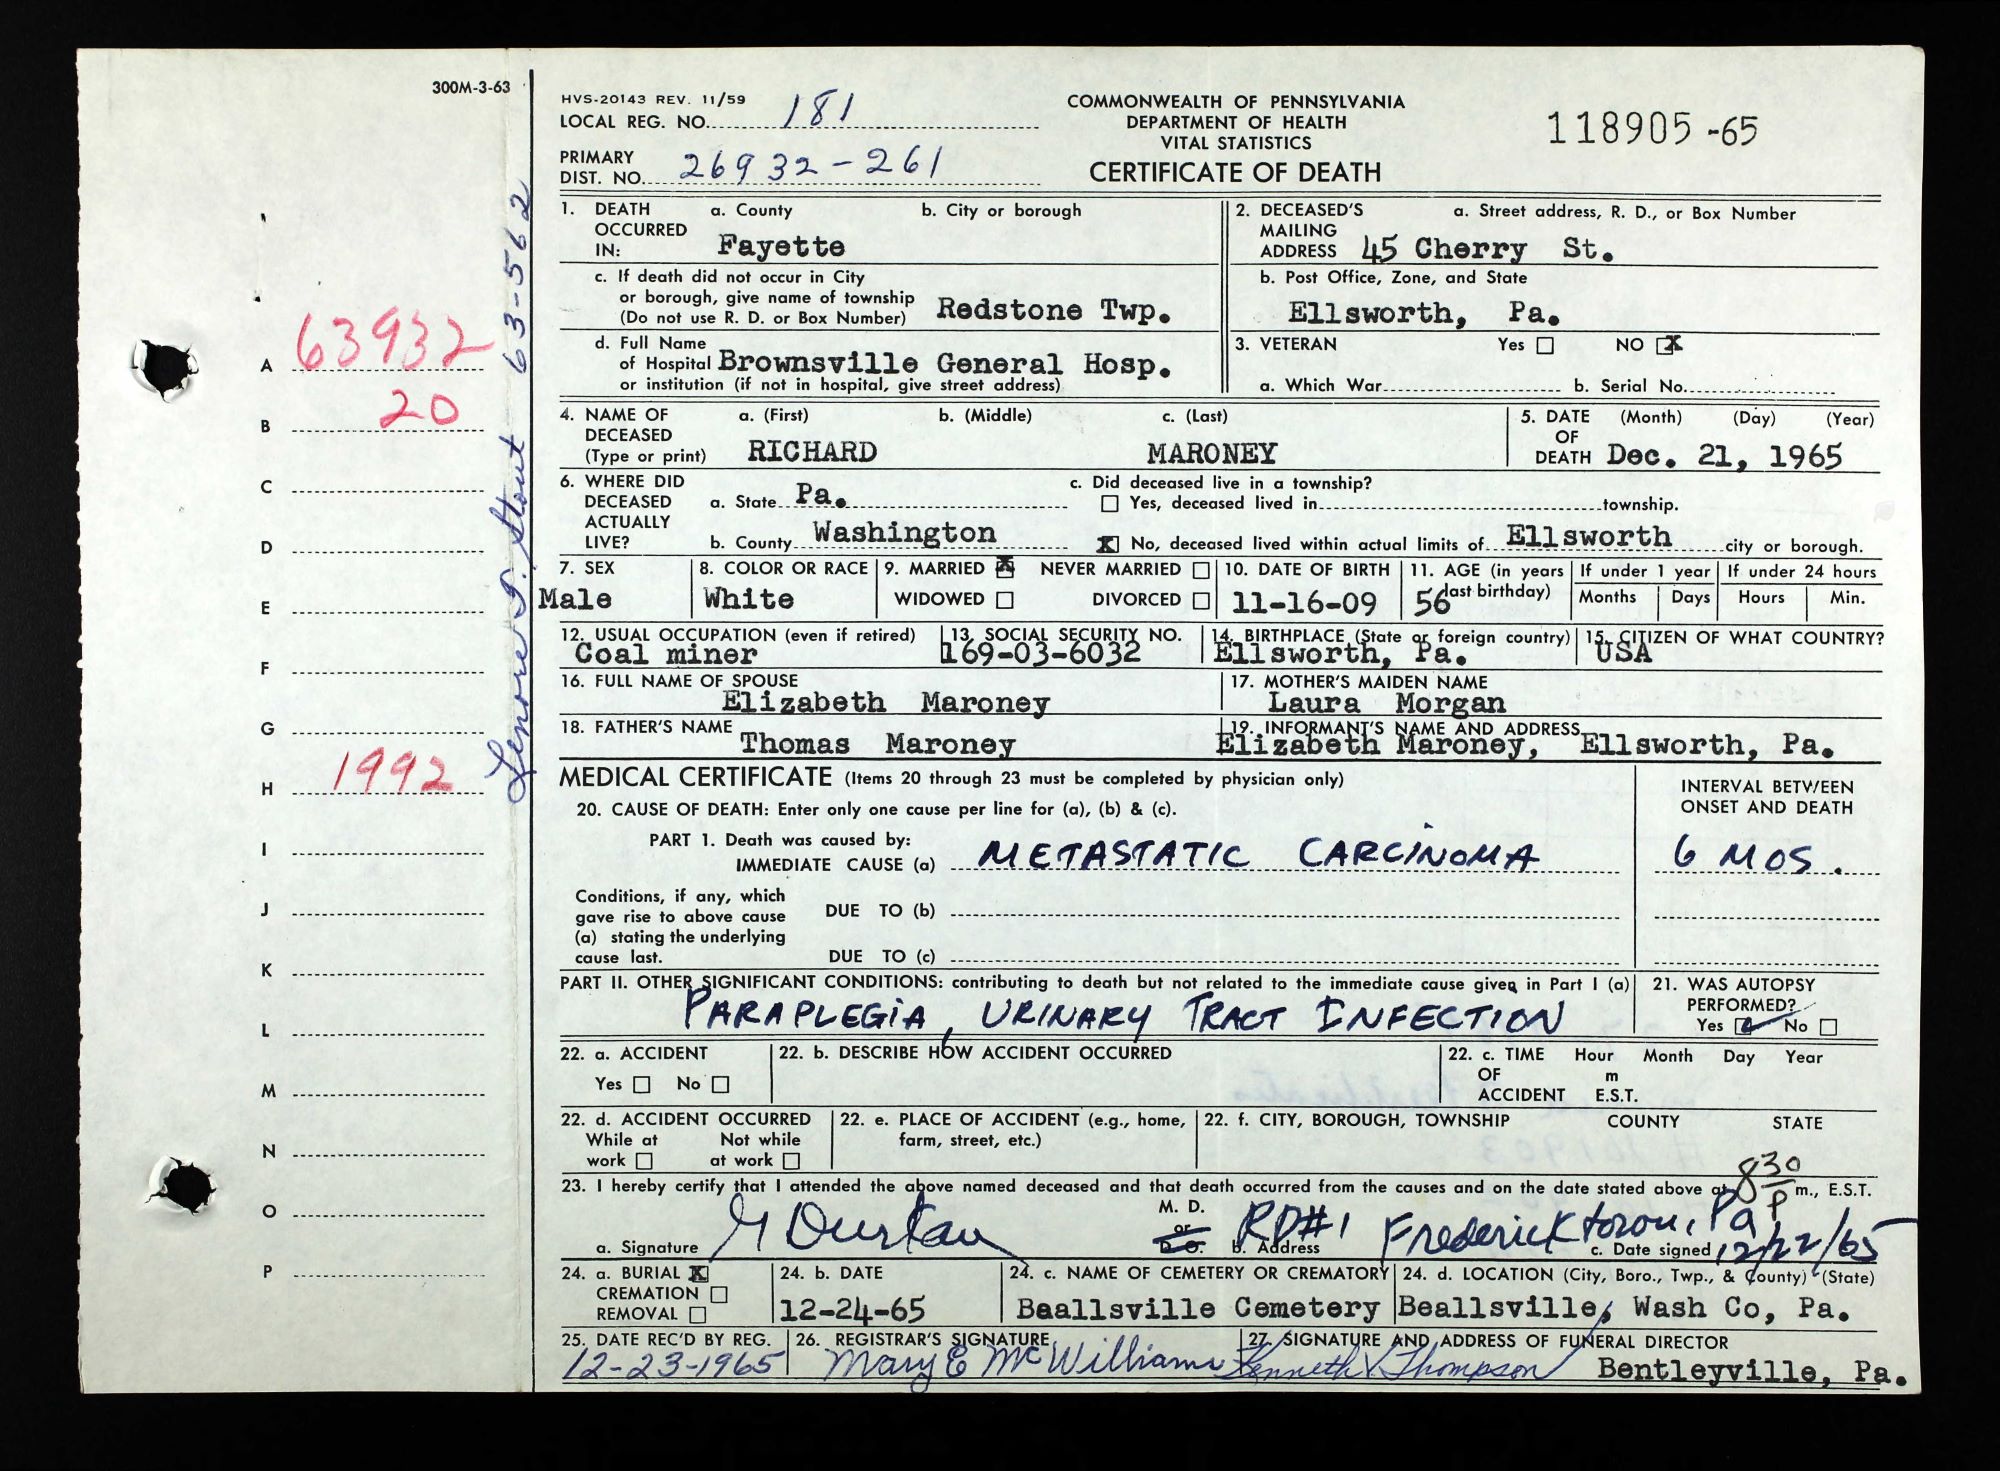 300M-3-63
HVS-20143 REV. 11/59
LOCAL REG. NO. 181
PRIMARY
DIST. NO. 26932-261
COMMONWEALTH OF PENNSYLVANIA
DEPARTMENT OF HEALTH
VITAL STATISTICS
CERTIFICATE OF DEATH
118905-65
63-562
A 63932
B 20
C
D
E
F
G
H 1992
I
J
K
L
M
N
O
P
1. DEATH OCCURRED IN: a. County b. City or borough
Fayette
c. If death did not occur in City
or borough, give name of township
(Do not use R. D. or Box Number) Redstone Twp.
d. Full Name
of Hospital Brownsville General Hosp.
or institution (if not in hospital, give street address)
2. DECEASED'S MAILING ADDRESS a. Street address, R. D., or Box Number
45 Cherry St.
b. Post Office, Zone, and State
Ellsworth, Pa.
3. VETERAN Yes NO X
a. Which War b. Serial No.
4. NAME OF DECEASED (Type or print) a. (First) b. (Middle) c. (Last)
RICHARD MARONEY
5. DATE OF DEATH (Month) (Day) (Year)
Dec. 21, 1965
6. WHERE DID DECEASED ACTUALLY LIVE? a. State Pa.
b. County Washington
c. Did deceased live in a township?
Yes, deceased lived in township.
X No, deceased lived within actual limits of Ellsworth city or borough.
7. SEX
Male
8. COLOR OR RACE
White
9. MARRIED X NEVER MARRIED
WIDOWED DIVORCED
10. DATE OF BIRTH
11-16-09
11. AGE (in years last birthday)
56
If under 1 year
Months Days
If under 24 hours
Hours Min.
12. USUAL OCCUPATION (even if retired)
Coal miner
13. SOCIAL SECURITY NO.
169-03-6032
14. BIRTHPLACE (State or foreign country)
Ellsworth, Pa.
15. CITIZEN OF WHAT COUNTRY?
USA
16. FULL NAME OF SPOUSE
Elizabeth Maroney
17. MOTHER'S MAIDEN NAME
Laura Morgan
18. FATHER'S NAME
Thomas Maroney
19. INFORMANT'S NAME AND ADDRESS
Elizabeth Maroney, Ellsworth, Pa.
MEDICAL CERTIFICATE (Items 20 through 23 must be completed by physician only)
20. CAUSE OF DEATH: Enter only one cause per line for (a), (b) & (c).
INTERVAL BETWEEN
ONSET AND DEATH
PART 1. Death was caused by:
IMMEDIATE CAUSE (a) METASTATIC CARCINOMA 6 MOS.
Conditions, if any, which
gave rise to above cause
(a) stating the underlying
cause last.
DUE TO (b)
DUE TO (c)
PART II. OTHER SIGNIFICANT CONDITIONS: contributing to death but not related to the immediate cause given in Part I (a)
PARAPLEGIA, URINARY TRACT INFECTION
21. WAS AUTOPSY
PERFORMED?
Yes No
22. a. ACCIDENT
Yes No
22. b. DESCRIBE HOW ACCIDENT OCCURRED
22. c. TIME OF ACCIDENT Hour Month Day Year
m
E.S.T.
22. d. ACCIDENT OCCURRED
While at work Not while at work
22. e. PLACE OF ACCIDENT (e.g., home,
farm, street, etc.)
22. f. CITY, BOROUGH, TOWNSHIP COUNTY STATE
23. I hereby certify that I attended the above named deceased and that death occurred from the causes and on the date stated above at 830 P m., E.S.T.
a. Signature M. D. or D. O. b. Address RD#1 Fredericktown, Pa
c. Date signed 12/22/65
24. a. BURIAL X
CREMATION
REMOVAL
24. b. DATE
12-24-65
24. c. NAME OF CEMETERY OR CREMATORY
Beallsville Cemetery
24. d. LOCATION (City, Boro., Twp., & County) (State)
Beallsville, Wash Co, Pa.
25. DATE REC'D BY REG.
12-23-1965
26. REGISTRAR'S SIGNATURE
Mary E McWilliams
27. SIGNATURE AND ADDRESS OF FUNERAL DIRECTOR
Kenneth V. Thompson Bentleyville, Pa.